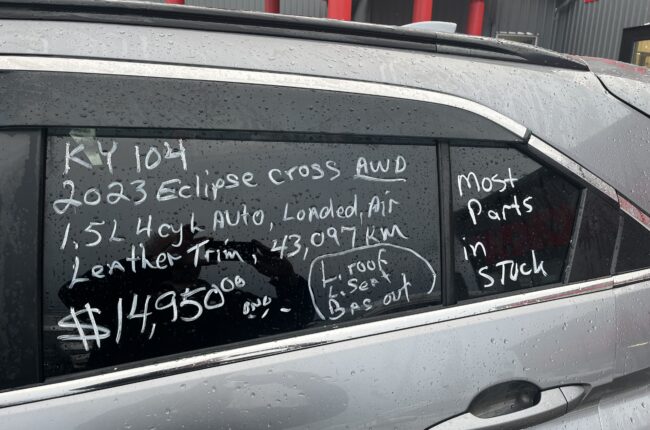 KY 104
2023 Eclipse cross AWD
1.5L 4cyl Auto, Londed, Air
Leather Trim, 43,097 KM
$14,950.00
L. roof
L. Seat
BAS out
Most
Parts
in
STUCK